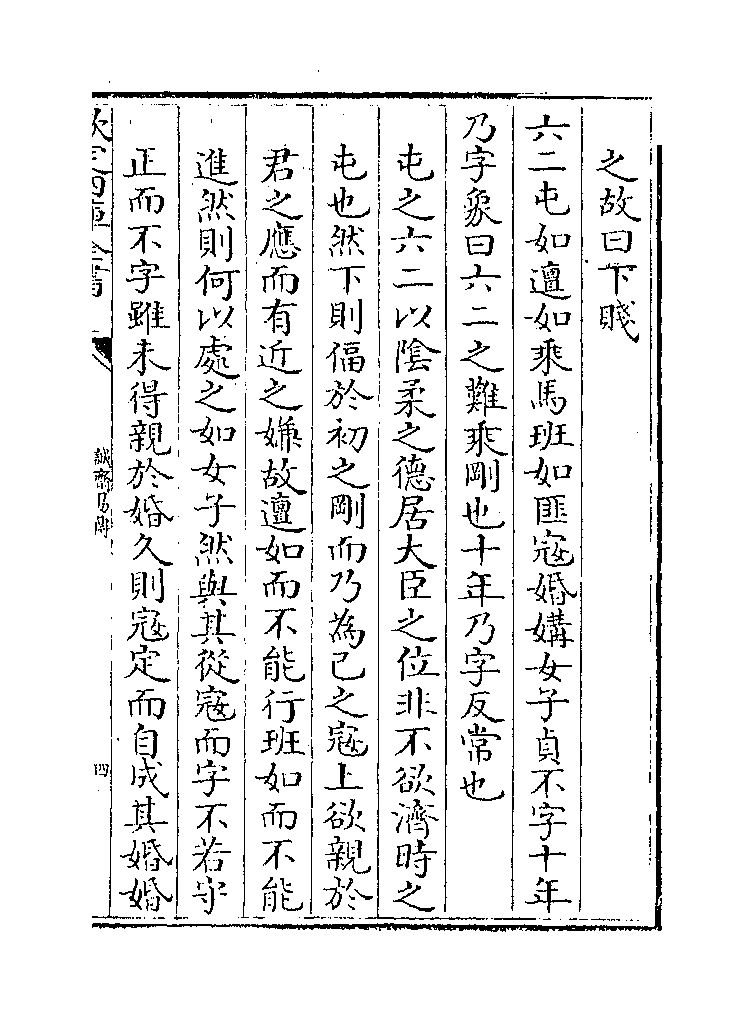 之故曰下賤
六二屯如邅如乘馬班如匪寇婚媾女子貞不字十年
乃字象曰六二之難乘剛也十年乃字反常也
屯之六二以隂柔之德居大臣之位非不欲濟時之
屯也然下則偪於初之剛而乃為己之寇上欲親於
君之應而有近之嫌故邅如而不能行班如而不能
進然則何以處之如女子然與其從寇而字不若守
正而不字雖未得親於婚久則寇定而自成其婚婚
欽定四庫全書
誠齋易傳
四